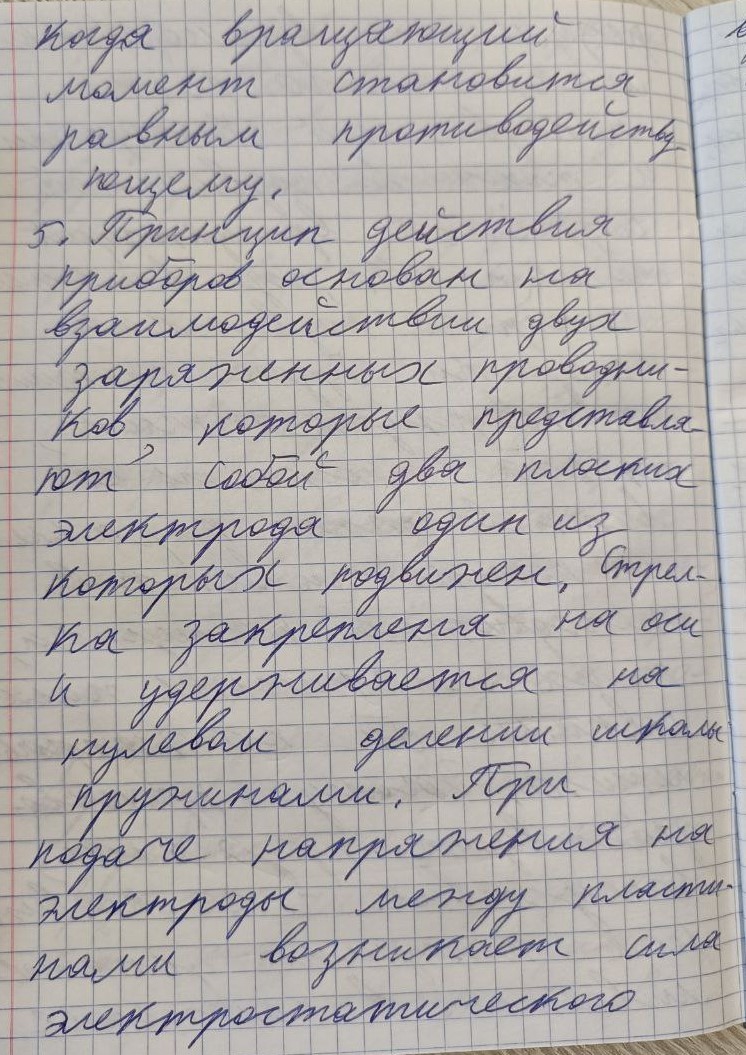 когда вращающий
момент становится
равным противодейству-
ющему.
5. Принцип действия
приборов основан на
взаимодействии двух
заряженных проводни-
ков, которые представля-
ют собой два плоских
электрода один из
которых подвижен. Стрел-
ка закрепленя на оси
и удерживается на
нулевом делении шкалы
пружинами. При
подаче напряжения на
электроды между пласти-
нами возникает сила
электростатического